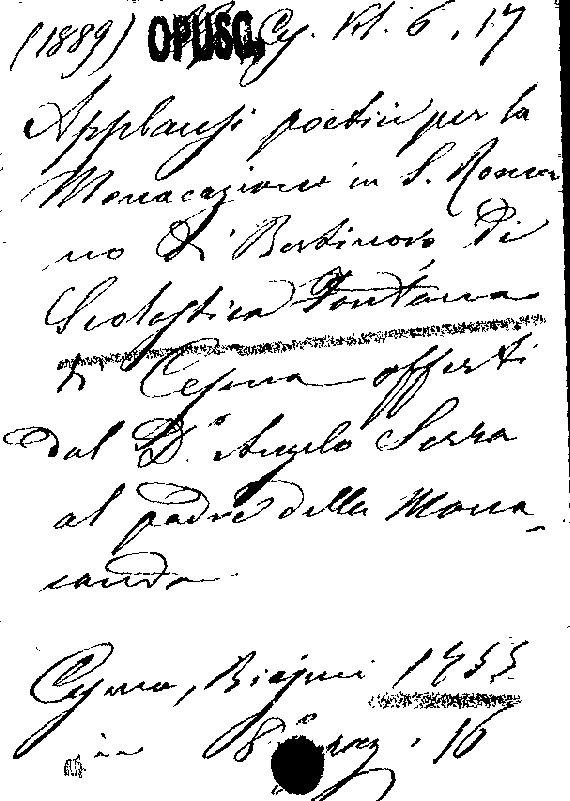 (1889) OPUSC. Ces. Vt. 6. 17
Applausi poetici per la
Monacazione in S. Roma
no di Bertinoro di
Scolastica Fontana
di Cesena offerti
dal D.º Angelo Serra
al padre della Mona-
canda
Cesena, Biasini 1755
in 8º pag. 16